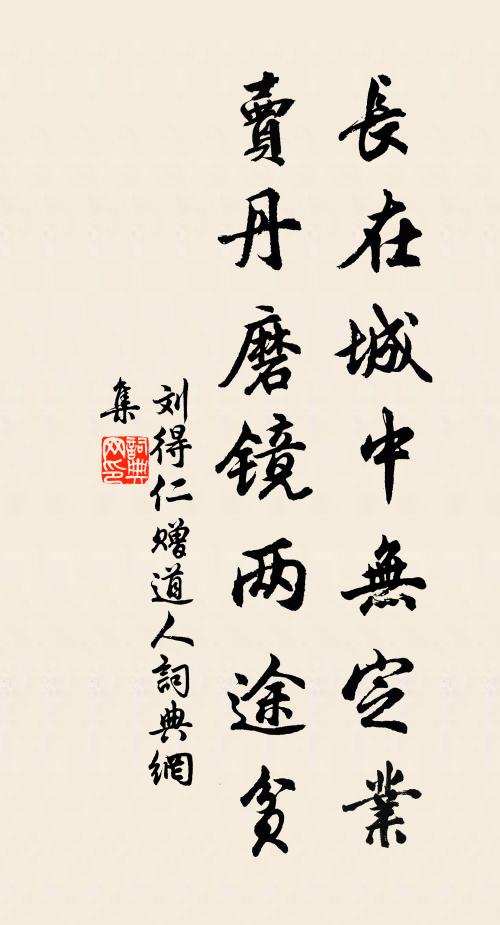 長在城中無定業
賣丹磨镜两途貧
刘得仁赠道人詞典網
集
詞典
网印